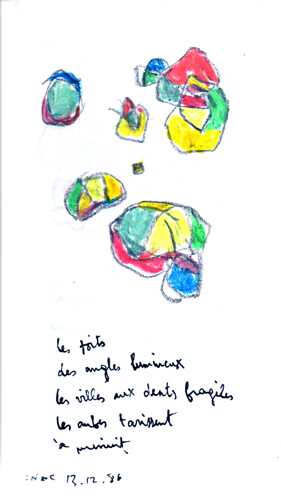 les toits
des angles lumineux
les villes aux dents fragiles
les aubes tarissent
à minuit
13.12.86